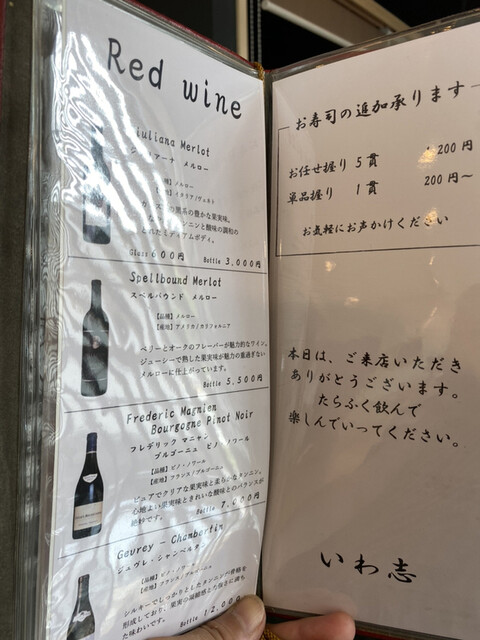 Red wine
iuliana Merlot
アーナ メルロー
メルロー
イタリア/ヴェネト
系の豊かな果実味。
ンニンと酸味の調和の
とれたミディアムボディ。
Glass 600円 Bottle 3,000円
Spellbound Merlot
スペルバウンド メルロー
【品種】メルロー
【産地】アメリカ/カリフォルニア
ベリーとオークのフレーバーが魅力的なワイン。
ジューシーで熟した果実味が魅力の重過ぎない
メルローに仕上がっています。
Bottle 5,500円
Frederic Magnien
Bourgogne Pinot Noir
フレデリック マニャン
ブルゴーニュ ピノ・ノワール
【品種】ピノ・ノワール
【産地】フランス/ブルゴーニュ
ピュアでクリアな果実味と柔らかなタンニン。
心地よい果実味ときれいな酸味とのバランスが
絶妙です。
Bottle 7,000円
Gevrey - Chambertin
ジュヴレ・シャンベルタン
【品種】ピノ・ノワール
【産地】フランス/ブルゴーニュ
シルキーでしっかりとしたタンニンが骨格を
形成しており、果実の凝縮感と力強さに満ち
た味わいです。
Bottle 12,000
お寿司の追加承ります
お任せ握り 5貫 200円
単品握り 1貫 200円〜
お気軽にお声かけください
本日は、ご来店いただき
ありがとうございます。
たらふく飲んで
楽しんでいってください。
いわ志